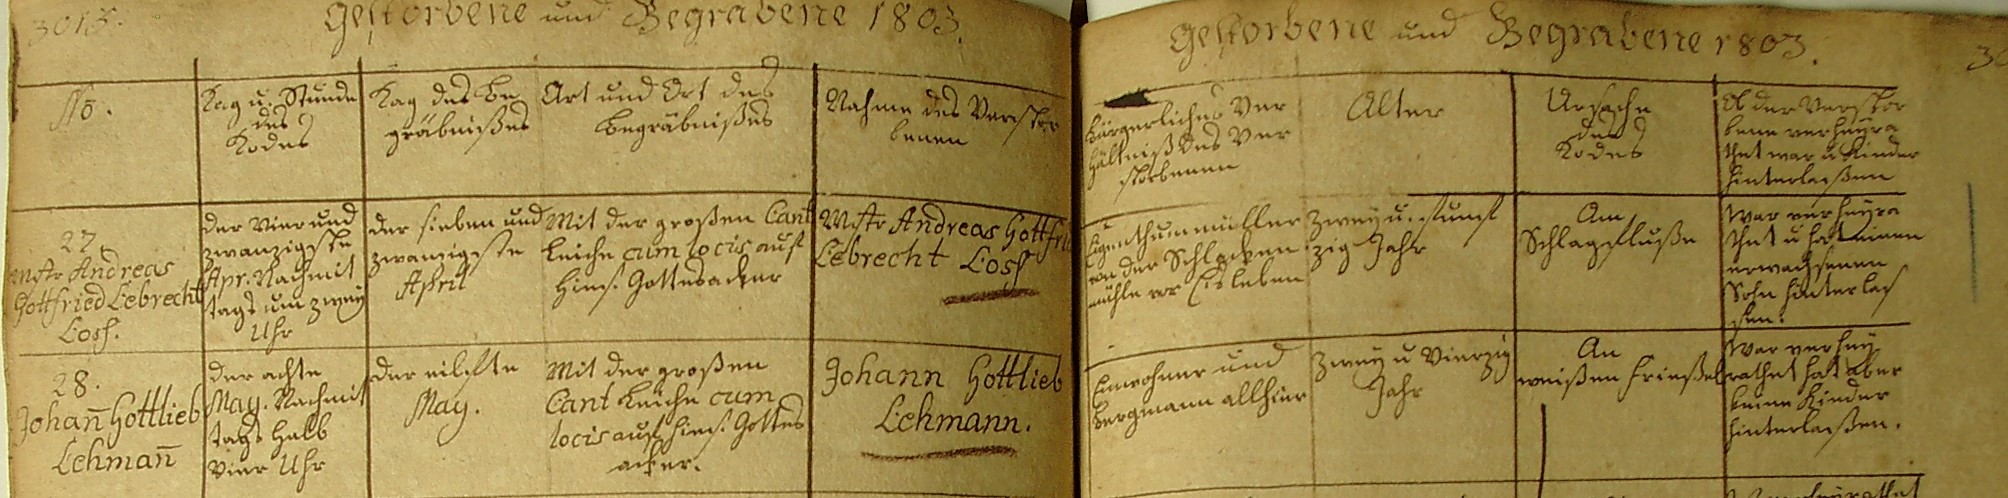 3015.
Gestorbene und Begrabene 1803.
No.
Tag u. Stunde
des
Todes
Tag des Be
gräbnißes
Art und Ort des
Begräbnißes
Nahme des Verstor
benen
27.
Mstr Andreas
Gottfried Lebrecht
Loss.
der vier und
zwanzigste
Apr. Nachmit
tags um zwey
Uhr
der sieben und
zwanzigste
April
Mit der großen Cant
Leiche cum locis auf
hies. Gottesacker
Mstr Andreas Gottfri
Lebrecht Loss
28.
Johan̄ Gottlieb
Lehman̄
der achte
May. Nachmit
tags halb
vier Uhr
der eilfte
May.
Mit der großen
Cant Leiche cum
locis auf hies. Gottes
acker.
Johann Gottlieb
Lehmann.
Gestorbene und Begrabene 1803.
30
Bürgerliches Ver
hältniß des Ver
storbenen
Alter
Ursache
des
Todes
Ob der Verstor
bene verheyra
thet war u Kinder
hinterlaßen
Eigenthumsmüller
von der Schlacken
mühle vor Eisleben
Zwey u. funf
zig Jahr
Am
Schlagfluße
War verheyra
thet u hat einen
erwachsenen
Sohn hinterlas
sen.
Einwohner und
Bergmann allhier
Zwey u Vierzig
Jahr
An
weißen Frießel
War verhey
rathet hat aber
keine Kinder
hinterlaßen.